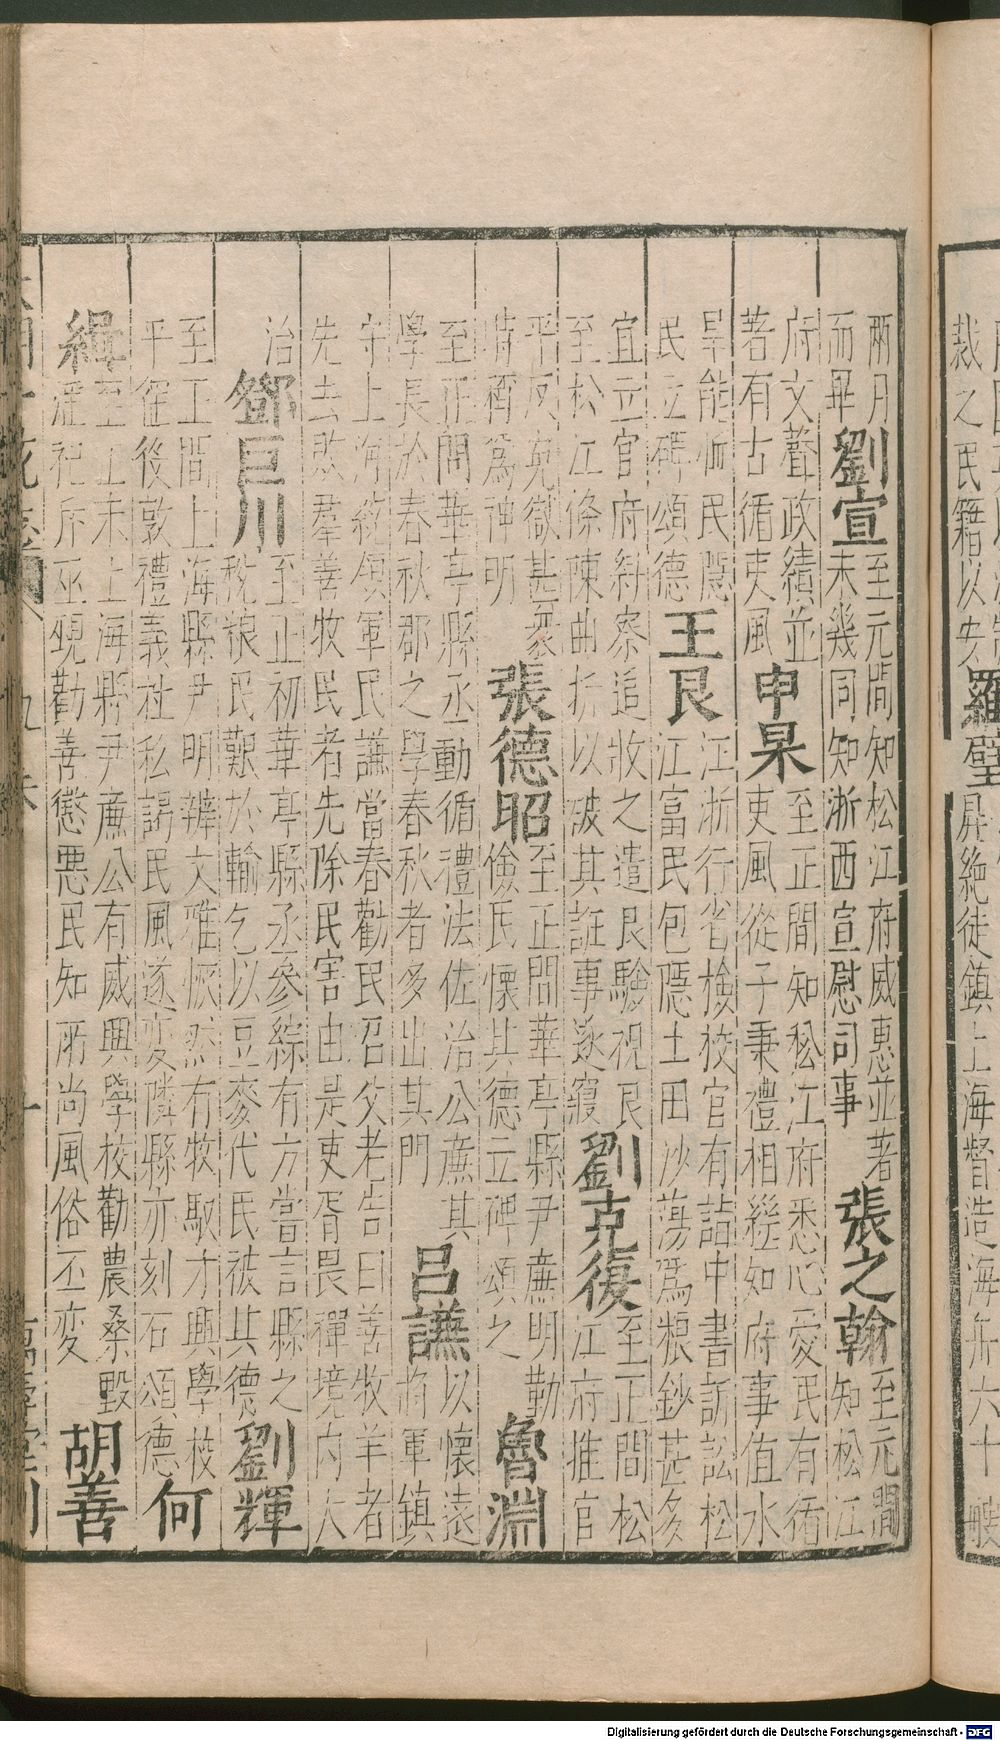 兩月
而畢
劉宣
至元間知松江府威惠並著
未幾同知浙西宣慰司事
張之翰
至元間
知松江
府文聲政績並
著有古循吏風
申杲
至正間知松江府悉心愛民有循
吏風從子秉禮相繼知府事值水
旱能恤民隱
民立碑頌德
王艮
江浙行省檢校官有詣中書訴訟松
江富民包隱土田沙蕩爲粮鈔甚多
宜立官府糾察追收之遣艮驗視艮
至松江條陳曲折以破其誑事遂寢
劉克復
至正間松
江府推官
平反寃獄甚衆
時稱爲神明
張德昭
至正間華亭縣尹亷明勤
儉民懷其德立碑頌之
魯淵
至正間華亭縣丞動循禮法佐治公亷其
學長於春秋郡之學春秋者多出其門
呂謙
以懷遠
將軍鎮
守上海統領軍民謙當春勸民召父老告曰善牧羊者
先去敗羣善牧民者先除民害由是吏胥畏憚境内大
治
鄧巨川
至正初華亭縣丞參綜有方嘗言縣之
稅粮民艱於輸乞以豆麥代民被其德
劉輝
至正間上海縣尹明辨文雅恢然有牧馭才興學校
平徭役敦禮義社私謁民風遂変隣縣亦刻石頌德
何
緝
至正末上海縣尹亷公有威興學校勸農桑毀
滛祀斥巫覡勸善懲惡民知所尚風俗丕变
胡善
裁之民籍以安
羅璧
昇絶徒鎮上海督造海舟六十艘
Digitalisierung gefördert durch die Deutsche Forschungsgemeinschaft - DFG